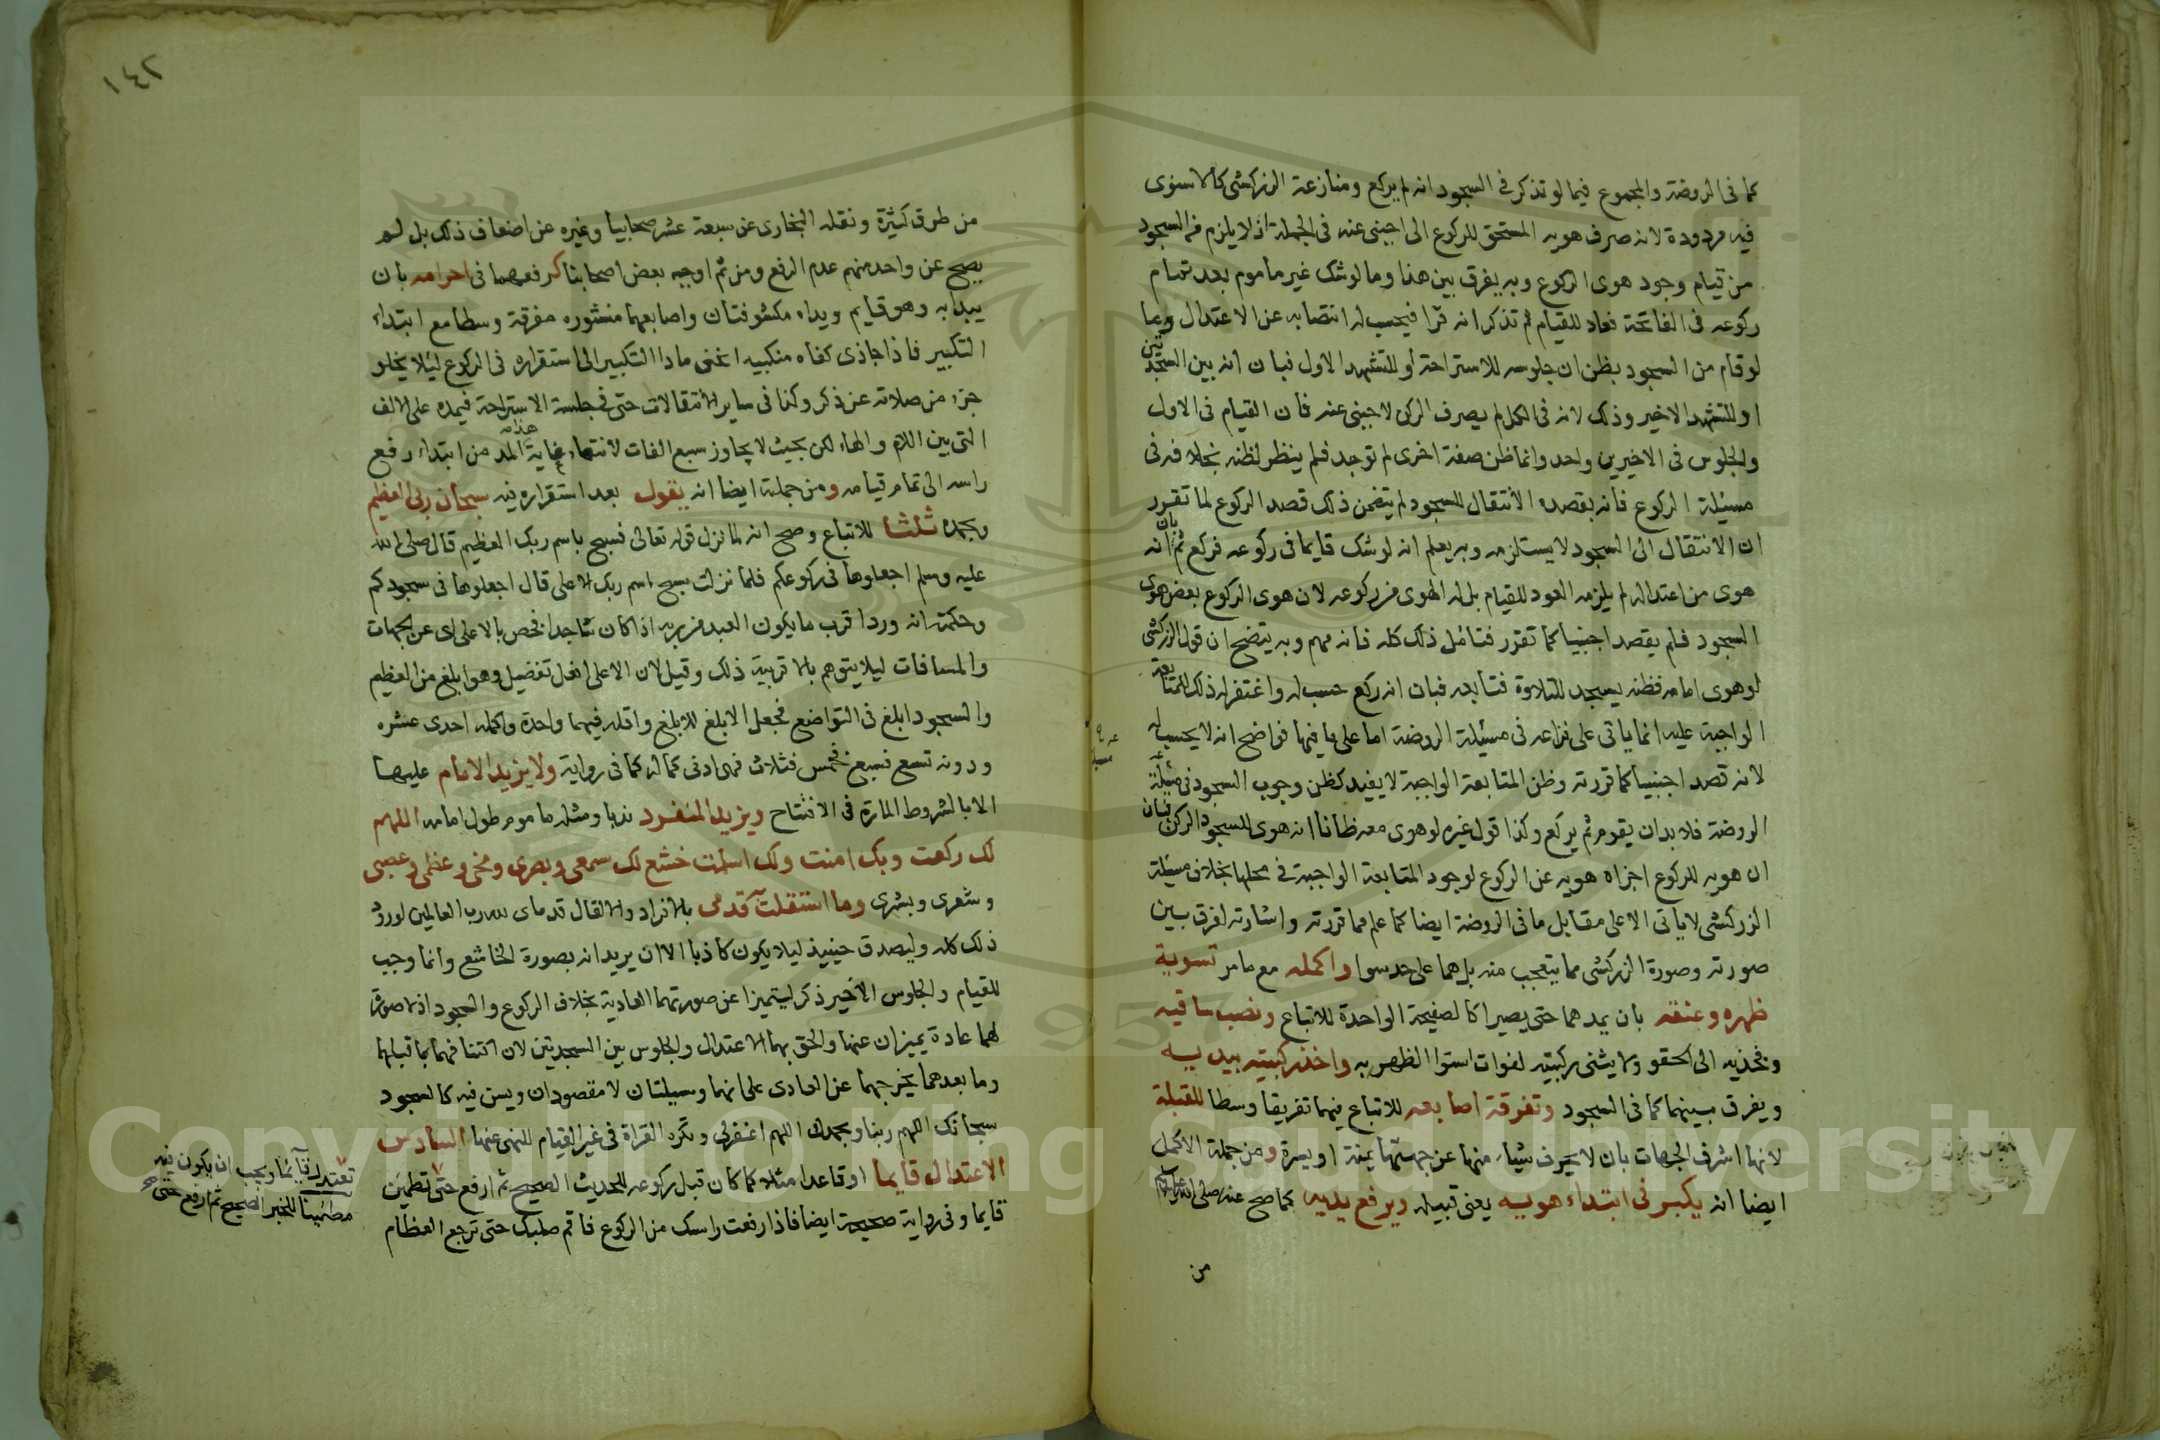 كما فى الروضة والمجموع فيما لو تذكر فى السجود انه لم يركع ومنازعة الزركشى كالاسنوى
فيه مردودة لانه صرف هويه المستحق للركوع الى اجنبى عنه فى الجملة اذ لا يلزم من السجود
من قيام وجود هوى الركوع وبه يفرق بين هذا وما لو شك غير ماموم بعد تمام
ركوعه فى الفاتحة فعاد للقيام ثم تذكر انه قرا فيحسب له انتصابه عن الاعتدال وما
لو قام من السجود يظن ان جلوسه للاستراحة او للتشهد الاول فبان انه بين السجدتين
او للتشهد الاخير وذلك لانه فى الكل لم يصرف الركن لاجنبى عنه فان القيام فى الاول
والجلوس فى الاخيرين واحد وانما ظن صفة اخرى لم توجد فلم ينظر لظنه بخلافه فى
مسئلة الركوع فانه بقصده الانتقال للسجود لم يتضمن ذلك قصد الركوع لما تقرر
ان الانتقال الى السجود لا يستلزمه وبه يعلم انه لو شك قايما فى ركوعه فركع ثم بان انه
هوى من اعتداله لم يلزمه العود للقيام بل له الهوى من ركوعه لان هوى الركوع بعض هوى
السجود فلم يقصد اجنبيا كما تقرر فتامل ذلك كله فانه مهم وبه يتضح ان قول الزركشى
لو هوى امامه فظنه يسجد للتلاوة فتابعه فبان انه ركع حسب له واغتفر له ذلك للمتابعة
الواجبة عليه انما ياتى على نزاعه فى مسئلة الروضة اما على ما فيها فواضح انه لا يحسب له
لانه قصد اجنبيا كما قررته وظن المتابعة الواجبة لا يفيد كظن وجوب السجود فى مسئلة
الروضة فلا بد ان يقوم ثم يركع وكذا قول غيره لو هوى معه ظانا انه هوى للسجود الركن فبان
ان هويه للركوع اجزاه هويه عن الركوع لوجود المتابعة الواجبة فى محلها بخلاف مسئلة
الزركشى لا ياتى الا على مقابل ما فى الروضة ايضا كما علم مما قررته واشارته لفرق بين
صورته وصورة الزركشى مما يتعجب منه بل هما على حد سوا واكمله مع ما مر تسوية
ظهره وعنقه بان يمدهما حتى يصيرا كالصفيحة الواحدة للاتباع ونصب ساقيه
وفخذيه الى الحقو ولا يثنى ركبتيه لفوات استوا الظهر به واخذ ركبتيه بيديه
ويفرق بينهما كما فى السجود وتفرقة اصابعه للاتباع فيهما تفريقا وسطا للقبلة
لانها اشرف الجهات بان لا يحرف شياء منها عن جهتها يمنة او يسرة ومن جملة الاكمل
ايضا انه يكبر فى ابتداء هويه يعنى قبيله ويرفع يديه كما صح عنه صلى الله عليه وسلم
من
١٤٢
من طرق كثيرة ونقله البخارى عن سبعة عشر صحابيا وغيره عن اضعاف ذلك بل لم
يصح عن واحد منهم عدم الرفع ومن ثم اوجبه بعض اصحابنا كرفعهما فى احرامه بان
يبدا به وهو قايم ويداه مكشوفتان واصابعهما منشوره مفرقة وسطا مع ابتداء
التكبير فاذا حاذى كفاه منكبيه انحنى مادا التكبير الى استقراره فى الركوع ليلا يخلو
جزء من صلاته عن ذكر وكذا فى ساير الانتقالات حتى فى جلسة الاستراحة فيمده على الالف
التى بين اللام والهاء لكن بحيث لا يجاوز سبع الفات لانتهاء غاية هذا المد من ابتداء رفع
راسه الى تمام قيامه ومن جملته ايضا انه يقول بعد استقراره فيه سبحان ربى العظيم
وبحمده ثلثا للاتباع وصح انه لما نزل قوله تعالى فسبح باسم ربك العظيم قال صلى الله
عليه وسلم اجعلوها فى ركوعكم فلما نزلت سبح اسم ربك الاعلى قال اجعلوها فى سجودكم
وحكمته انه ورد اقرب ما يكون العبد من ربه اذا كان ساجدا فخص بالاعلى اى عن الجهات
والمسافات ليلا يتوهم بالاقربية ذلك وقيل لان الاعلى افعل تفضيل وهو ابلغ من العظيم
والسجود ابلغ فى التواضع فجعل الابلغ للابلغ واقله فيهما واحدة واكمله احدى عشره
ودونه تسع فسبع فخمس فثلاث فهى ادنى كماله كما فى رواية ولا يزيد الامام عليها
الا بالشروط المارة فى الافتتاح ويزيد المنفرد ندبا ومثله ماموم طول امامه اللهم
لك ركعت وبك امنت ولك اسلمت خشع لك سمعى وبصرى ومخى وعظمى وعصبى
وشعرى وبشرى وما استقلت قدمى بالافراد والا لقال قدماى لله رب العالمين لورود
ذلك كله وليصدق حينيذ ليلا يكون كاذبا الا ان يريد انه بصورة الخاشع وانما وجب
للقيام والجلوس الاخير ذكر ليتميزا عن صورتهما العادية بخلاف الركوع والسجود اذ لا صورة
لهما عادة يميزان عنها والحق بهما الاعتدال والجلوس بين السجدتين لان اكتنافهما بما قبلهما
وما بعدهما يخرجهما عن العادى على انهما وسيلتان لا مقصودان ويسن فيه كالسجود
سبحانك اللهم ربنا وبحمدك اللهم اغفر لى وتكره القراة فى غير القيام للنهى عنها السادس
الاعتدال قايما او قاعدا مثلا كما كان قبل ركوعه للحديث الصحيح ثم ارفع حتى تطمين
قايما وفى رواية صحيحة ايضا فاذا رفعت راسك من الركوع فاقم صلبك حتى ترجع العظام
تعتدل قايما ويجب ان يكون فيه
مطمينا للخبر الصحيح ثم ارفع حتى